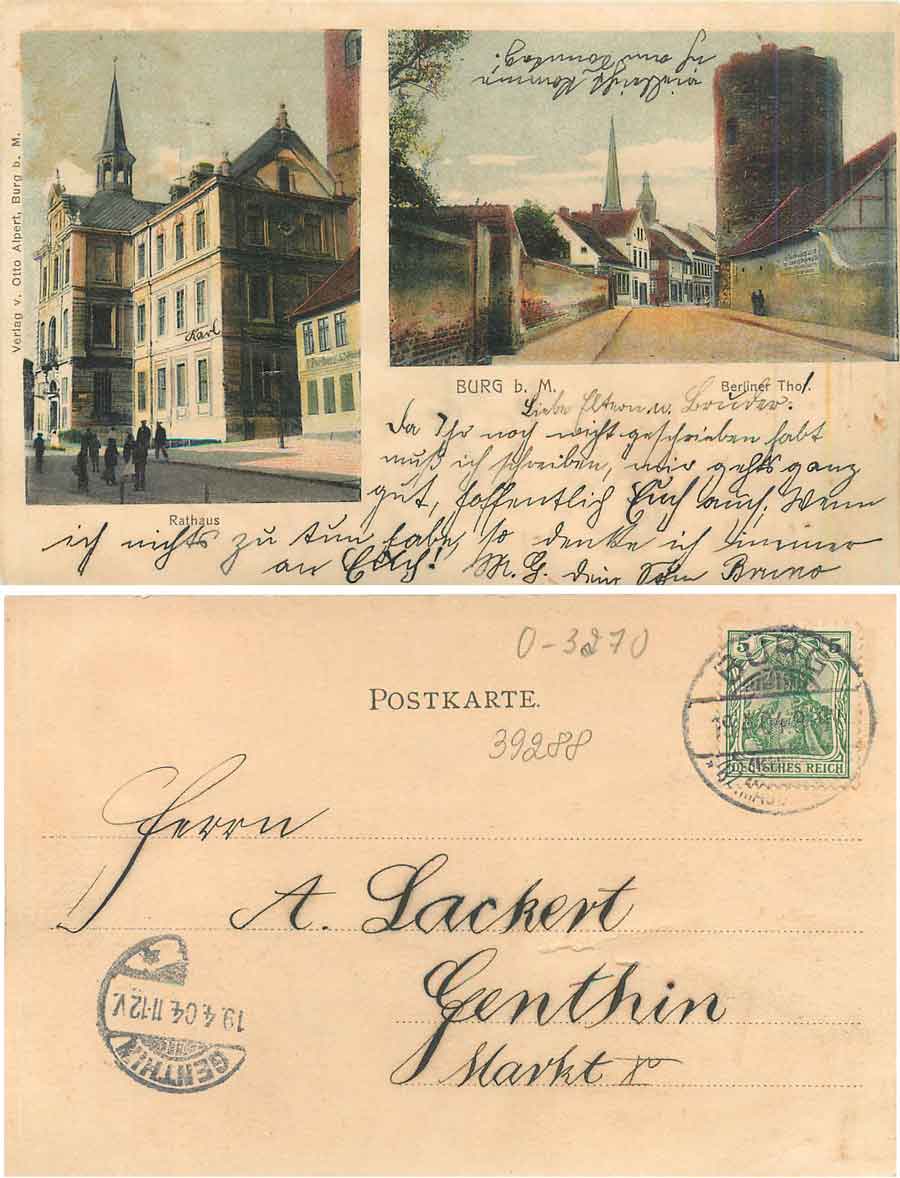 Verlag v. Otto Alpert, Burg b. M.
vielleicht komme
ich am Sonntag.
Karl
BURG b. M.
Berliner Thor.
Rathaus
Liebe Eltern u. Bruder.
Da Ihr noch nicht geschrieben habt
muß ich schreiben, mir gehts ganz
gut, hoffentlich Euch auch. Wenn
ich nichts zu tun habe, so denke ich immer
an Euch! M. G. dein Sohn Bruno
0-3270
POSTKARTE.
39288
5 5
DEUTSCHES REICH
BURG
Herrn
A. Lackert
Genthin
Markt
GENTHIN
19.4.04. 11-12 V.